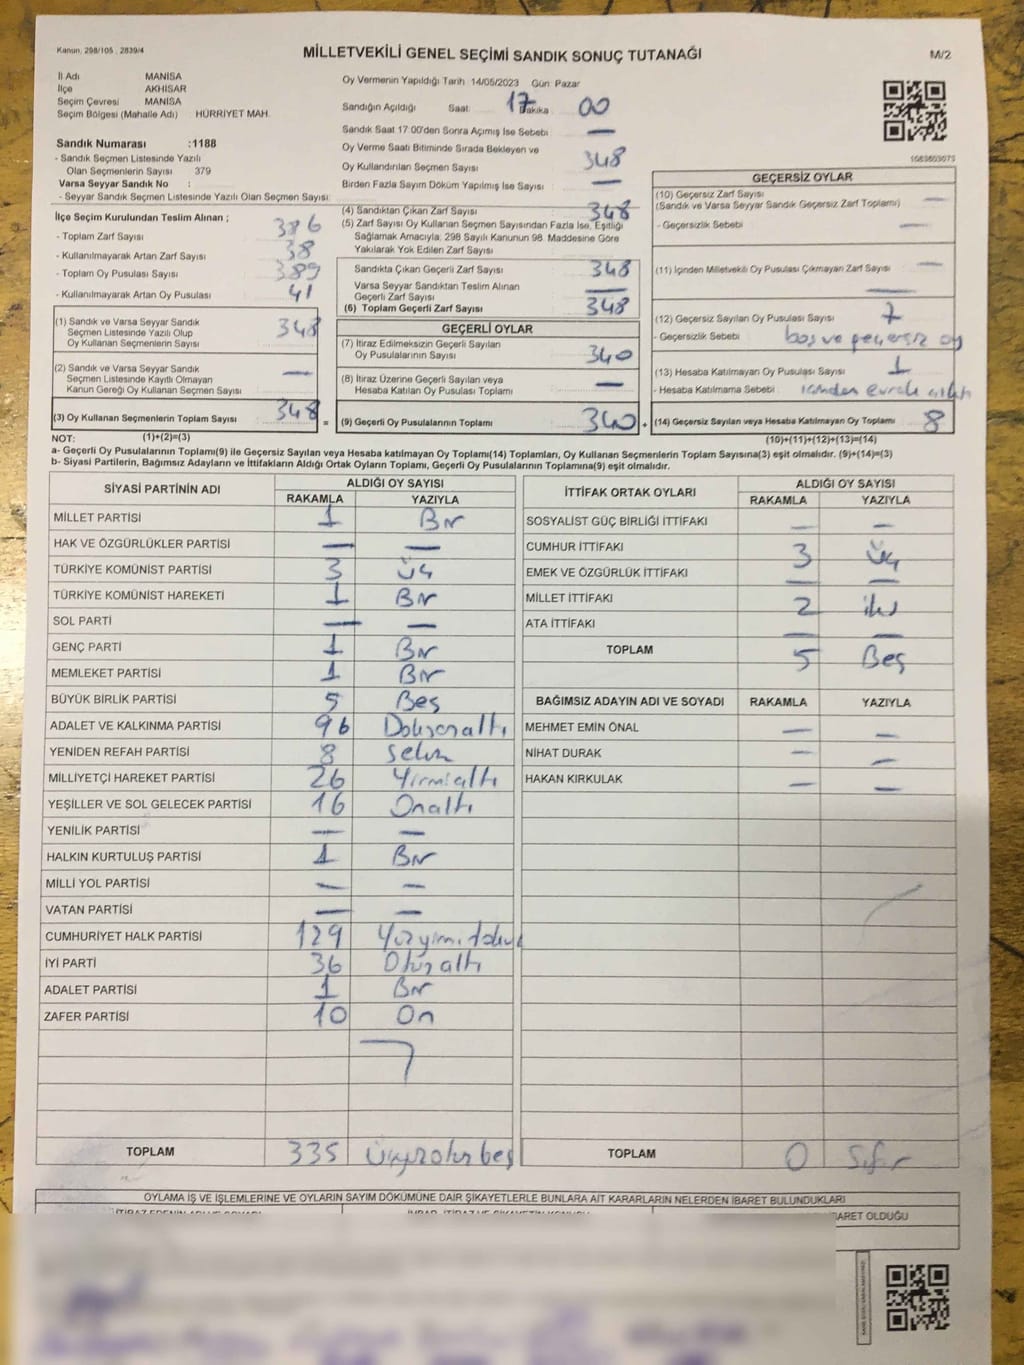 Kanun, 298/105 , 2839/4
MİLLETVEKİLİ GENEL SEÇİMİ SANDIK SONUÇ TUTANAĞI
M/2
İl Adı MANİSA
İlçe AKHİSAR
Seçim Çevresi MANİSA
Seçim Bölgesi (Mahalle Adı) HÜRRİYET MAH.
Sandık Numarası :1188
- Sandık Seçmen Listesinde Yazılı
Olan Seçmenlerin Sayısı 379
Varsa Seyyar Sandık No :
- Seyyar Sandık Seçmen Listesinde Yazılı Olan Seçmen Sayısı:
Oy Vermenin Yapıldığı Tarih 14/05/2023 Gün Pazar
Sandığın Açıldığı Saat: 17 Dakika 00
Sandık Saat 17:00'den Sonra Açmış İse Sebebi —
Oy Verme Saati Bitiminde Sırada Bekleyen ve
Oy Kullandırılan Seçmen Sayısı 348
Birden Fazla Sayım Döküm Yapılmış İse Sayısı —
1083803073
İlçe Seçim Kurulundan Teslim Alınan ;
- Toplam Zarf Sayısı 386
- Kullanılmayarak Artan Zarf Sayısı 38
- Toplam Oy Pusulası Sayısı 389
- Kullanılmayarak Artan Oy Pusulası 41
(1) Sandık ve Varsa Seyyar Sandık
Seçmen Listesinde Yazılı Olup
Oy Kullanan Seçmenlerin Sayısı 348
(2) Sandık ve Varsa Seyyar Sandık
Seçmen Listesinde Kayıtlı Olmayan
Kanun Gereği Oy Kullanan Seçmen Sayısı —
(3) Oy Kullanan Seçmenlerin Toplam Sayısı 348 =
(1)+(2)=(3)
(4) Sandıktan Çıkan Zarf Sayısı 348
(5) Zarf Sayısı Oy Kullanan Seçmen Sayısından Fazla İse, Eşitliği
Sağlamak Amacıyla, 298 Sayılı Kanunun 98. Maddesine Göre
Yakılarak Yok Edilen Zarf Sayısı
Sandıkta Çıkan Geçerli Zarf Sayısı 348
Varsa Seyyar Sandıktan Teslim Alınan
Geçerli Zarf Sayısı —
(6) Toplam Geçerli Zarf Sayısı 348
GEÇERLİ OYLAR
(7) İtiraz Edilmeksizin Geçerli Sayılan
Oy Pusulalarının Sayısı 340
(8) İtiraz Üzerine Geçerli Sayılan veya
Hesaba Katılan Oy Pusulası Toplamı —
(9) Geçerli Oy Pusulalarının Toplamı 340 +
GEÇERSİZ OYLAR
(10) Geçersiz Zarf Sayısı
(Sandık ve Varsa Seyyar Sandık Geçersiz Zarf Toplamı) —
- Geçersizlik Sebebi —
(11) İçinden Milletvekili Oy Pusulası Çıkmayan Zarf Sayısı —
(12) Geçersiz Sayılan Oy Pusulası Sayısı 7
- Geçersizlik Sebebi boş ve geçersiz oy
(13) Hesaba Katılmayan Oy Pusulası Sayısı 1
- Hesaba Katılmama Sebebi içinden evrak
(14) Geçersiz Sayılan veya Hesaba Katılmayan Oy Toplamı 8
(10)+(11)+(12)+(13)=(14)
NOT:
a- Geçerli Oy Pusulalarının Toplamı(9) ile Geçersiz Sayılan veya Hesaba katılmayan Oy Toplamı(14) Toplamları, Oy Kullanan Seçmenlerin Toplam Sayısına(3) eşit olmalıdır. (9)+(14)=(3)
b- Siyasi Partilerin, Bağımsız Adayların ve İttifakların Aldığı Ortak Oyların Toplamı, Geçerli Oy Pusulalarının Toplamına(9) eşit olmalıdır.
SİYASİ PARTİNİN ADI ALDIĞI OY SAYISI
RAKAMLA YAZIYLA
MİLLET PARTİSİ 1 Bir
HAK VE ÖZGÜRLÜKLER PARTİSİ — —
TÜRKİYE KOMÜNİST PARTİSİ 3 Üç
TÜRKİYE KOMÜNİST HAREKETİ 1 Bir
SOL PARTİ — —
GENÇ PARTİ 1 Bir
MEMLEKET PARTİSİ 1 Bir
BÜYÜK BİRLİK PARTİSİ 5 Beş
ADALET VE KALKINMA PARTİSİ 96 Doksanaltı
YENİDEN REFAH PARTİSİ 8 Sekiz
MİLLİYETÇİ HAREKET PARTİSİ 26 Yirmialtı
YEŞİLLER VE SOL GELECEK PARTİSİ 16 Onaltı
YENİLİK PARTİSİ — —
HALKIN KURTULUŞ PARTİSİ 1 Bir
MİLLİ YOL PARTİSİ — —
VATAN PARTİSİ — —
CUMHURİYET HALK PARTİSİ 129 Yüzyirmidokuz
İYİ PARTİ 36 Otuzaltı
ADALET PARTİSİ 1 Bir
ZAFER PARTİSİ 10 On
TOPLAM 335 Üçyüzotuzbeş
İTTİFAK ORTAK OYLARI ALDIĞI OY SAYISI
RAKAMLA YAZIYLA
SOSYALİST GÜÇ BİRLİĞİ İTTİFAKI — —
CUMHUR İTTİFAKI 3 Üç
EMEK VE ÖZGÜRLÜK İTTİFAKI — —
MİLLET İTTİFAKI 2 iki
ATA İTTİFAKI — —
TOPLAM 5 Beş
BAĞIMSIZ ADAYIN ADI VE SOYADI RAKAMLA YAZIYLA
MEHMET EMİN ÖNAL — —
NİHAT DURAK — —
HAKAN KIRKULAK — —
TOPLAM 0 Sıfır
OYLAMA İŞ VE İŞLEMLERİNE VE OYLARIN SAYIM DÖKÜMÜNE DAİR ŞİKAYETLERLE BUNLARA AİT KARARLARIN NELERDEN İBARET BULUNDUKLARI
İBARET OLDUĞU